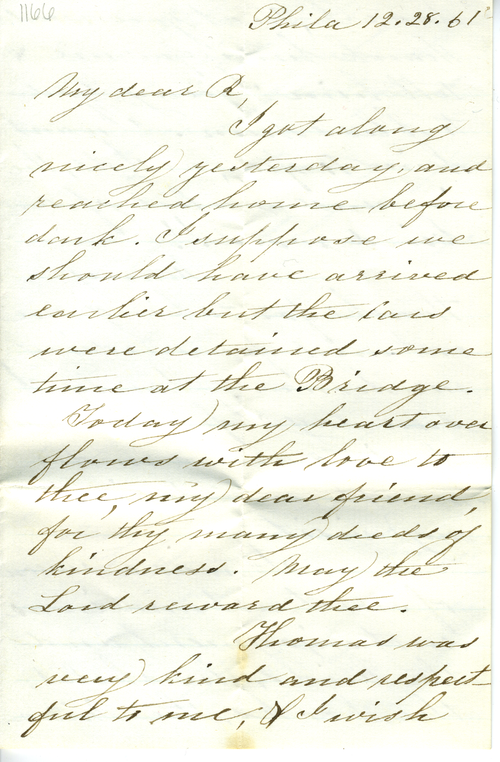 1166
Phila 12.28.61
My dear R,
I got along
nicely yesterday, and
reached home before
dark. I suppose we
should have arrived
earlier but the Cars
were detained some
time at the Bridge.
Today my heart over
flows with love to
thee, my dear friend,
for thy many deeds of
kindness. May the
Lord reward thee.
Thomas was
very kind and respect-
ful to me, & I wish